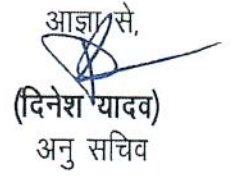 आज्ञा से,
(दिनेश यादव)
अनु सचिव